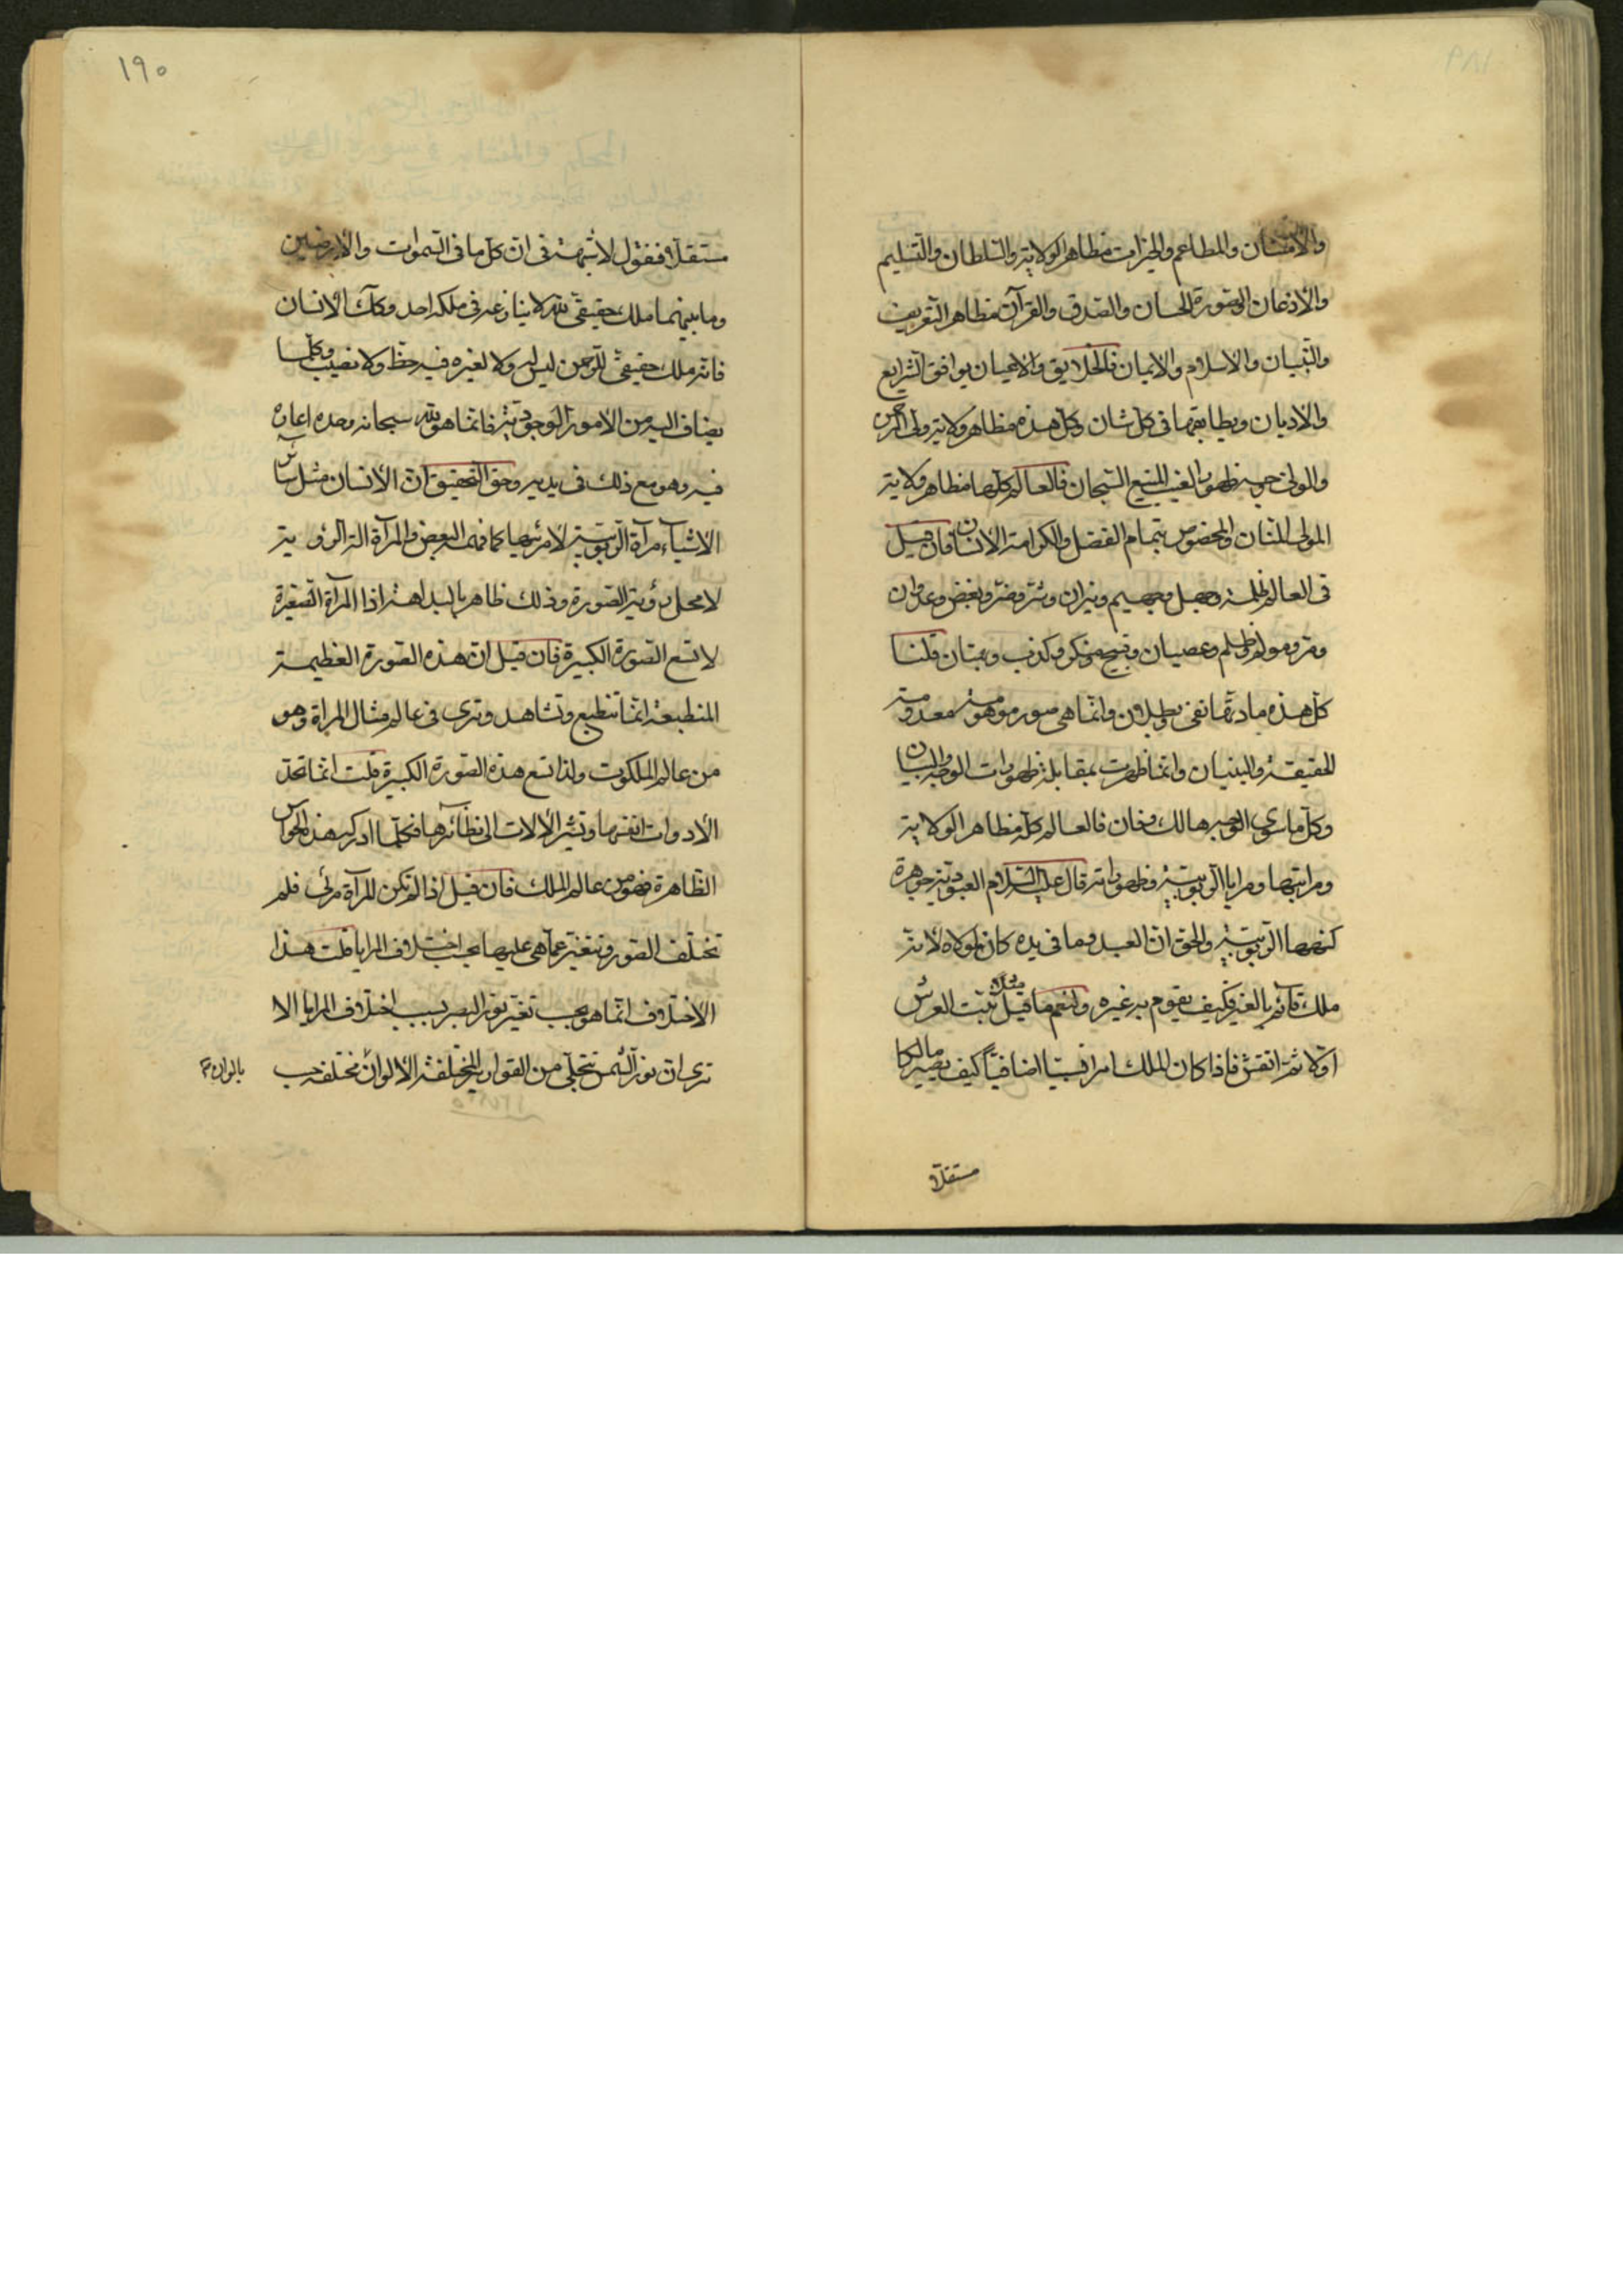 والامتنان والمطاعم والخيرات مظاهر الولاية والسلطان والتسليم
والأذعان الصورة الحسان والصدق والقرآن مظاهر التعريف
والتبيان والاسلام والايمان فالخلايق والاعيان يوافق الشرايع
والاديان ويطابقها فى كل شان وكل هذه مظاهر ولاية ولى الرحمن
والمولى حوبه ظهور الغيب المنيع السبحان فالعالم كلها مظاهر ولاية
المولى المنان والمخصوص بتمام الفضل والكرامة الأنسان فان قيل
فى العالم ظلمة وجهل وجحيم ونيران وشر وضر وبغض وعدوان
وظلم وعصيان وقبيح ومنكر وكذب وبهتان قلنا
كل هذه مادتها نفى وبطلان وانما هى صور موهومة معدومة
الحقيقة والبنيان وانما ظهرت بمقابلة ظهورات الوجه والبيان
وكل ما سوى الوجه هالك وفان فالعالم كله مظاهر الولاية
ومراتبها ومرايا الربوبية وظهوراته قال عليه السلام العبودية جوهرة
كنهها الربوبية والحق ان العبد وما فى يده كان لمولاه لانه
ملك قائم بالغير فكيف يقوم به غيره ولنعم ما قيل مثلا ثبت العرش
اولا ثم انقش فاذا كان الملك امرا نسبيا اضافيا كيف يصير مالكا
مستقلا
١٩٠
مستقلا فنقول لا شبهة فى ان كل ما فى السموات والأرضين
وما بينهما ملك حقيقى لله لا ينازعه فى ملكه احد وكك الأنسان
فانه ملك حقيقى للرحمن ليس له ولا لغيره فيه حظ ولا نصيب وكلما
يضاف اليه من الأمور الوجودية فانما هو لله سبحانه وحده اعاره
فيه وهو مع ذلك فى يديه وحق التحقيق ان الأنسان مثل سائر
الأشياء مرآة الربوبية لا مرئيها كما فهمه البعض والمرآة آلة الرؤية
لا محل رؤية الصورة وذلك ظاهر بالبداهة اذا المرآة الصغيرة
لا تسع الصورة الكبيرة فان قيل ان هذه الصورة العظيمة
المنطبعة انما تنطبع وتشاهد وترى فى عالم مثال المرآة وهو
من عالم الملكوت ولذا تسع هذه الصورة الكبيرة قلت انما تحد
الأدوات انفسها وتشير الألات الى نظائرها فكلما ادركه هذه الحواس
الظاهرة فهو من عالم الملك فان قيل اذا لم تكن المرآة مرئى فلم
تختلف الصور وتتغير عما هى عليها بحسب اختلاف المرايا قلت هذا
الأختلاف انما هو بحسب تغير نور البصر بسبب اختلاف المرايا الا
ترى ان نور الشمس يتجلى من القوارير المختلفة الألوان مختلفه حسب
بالوان